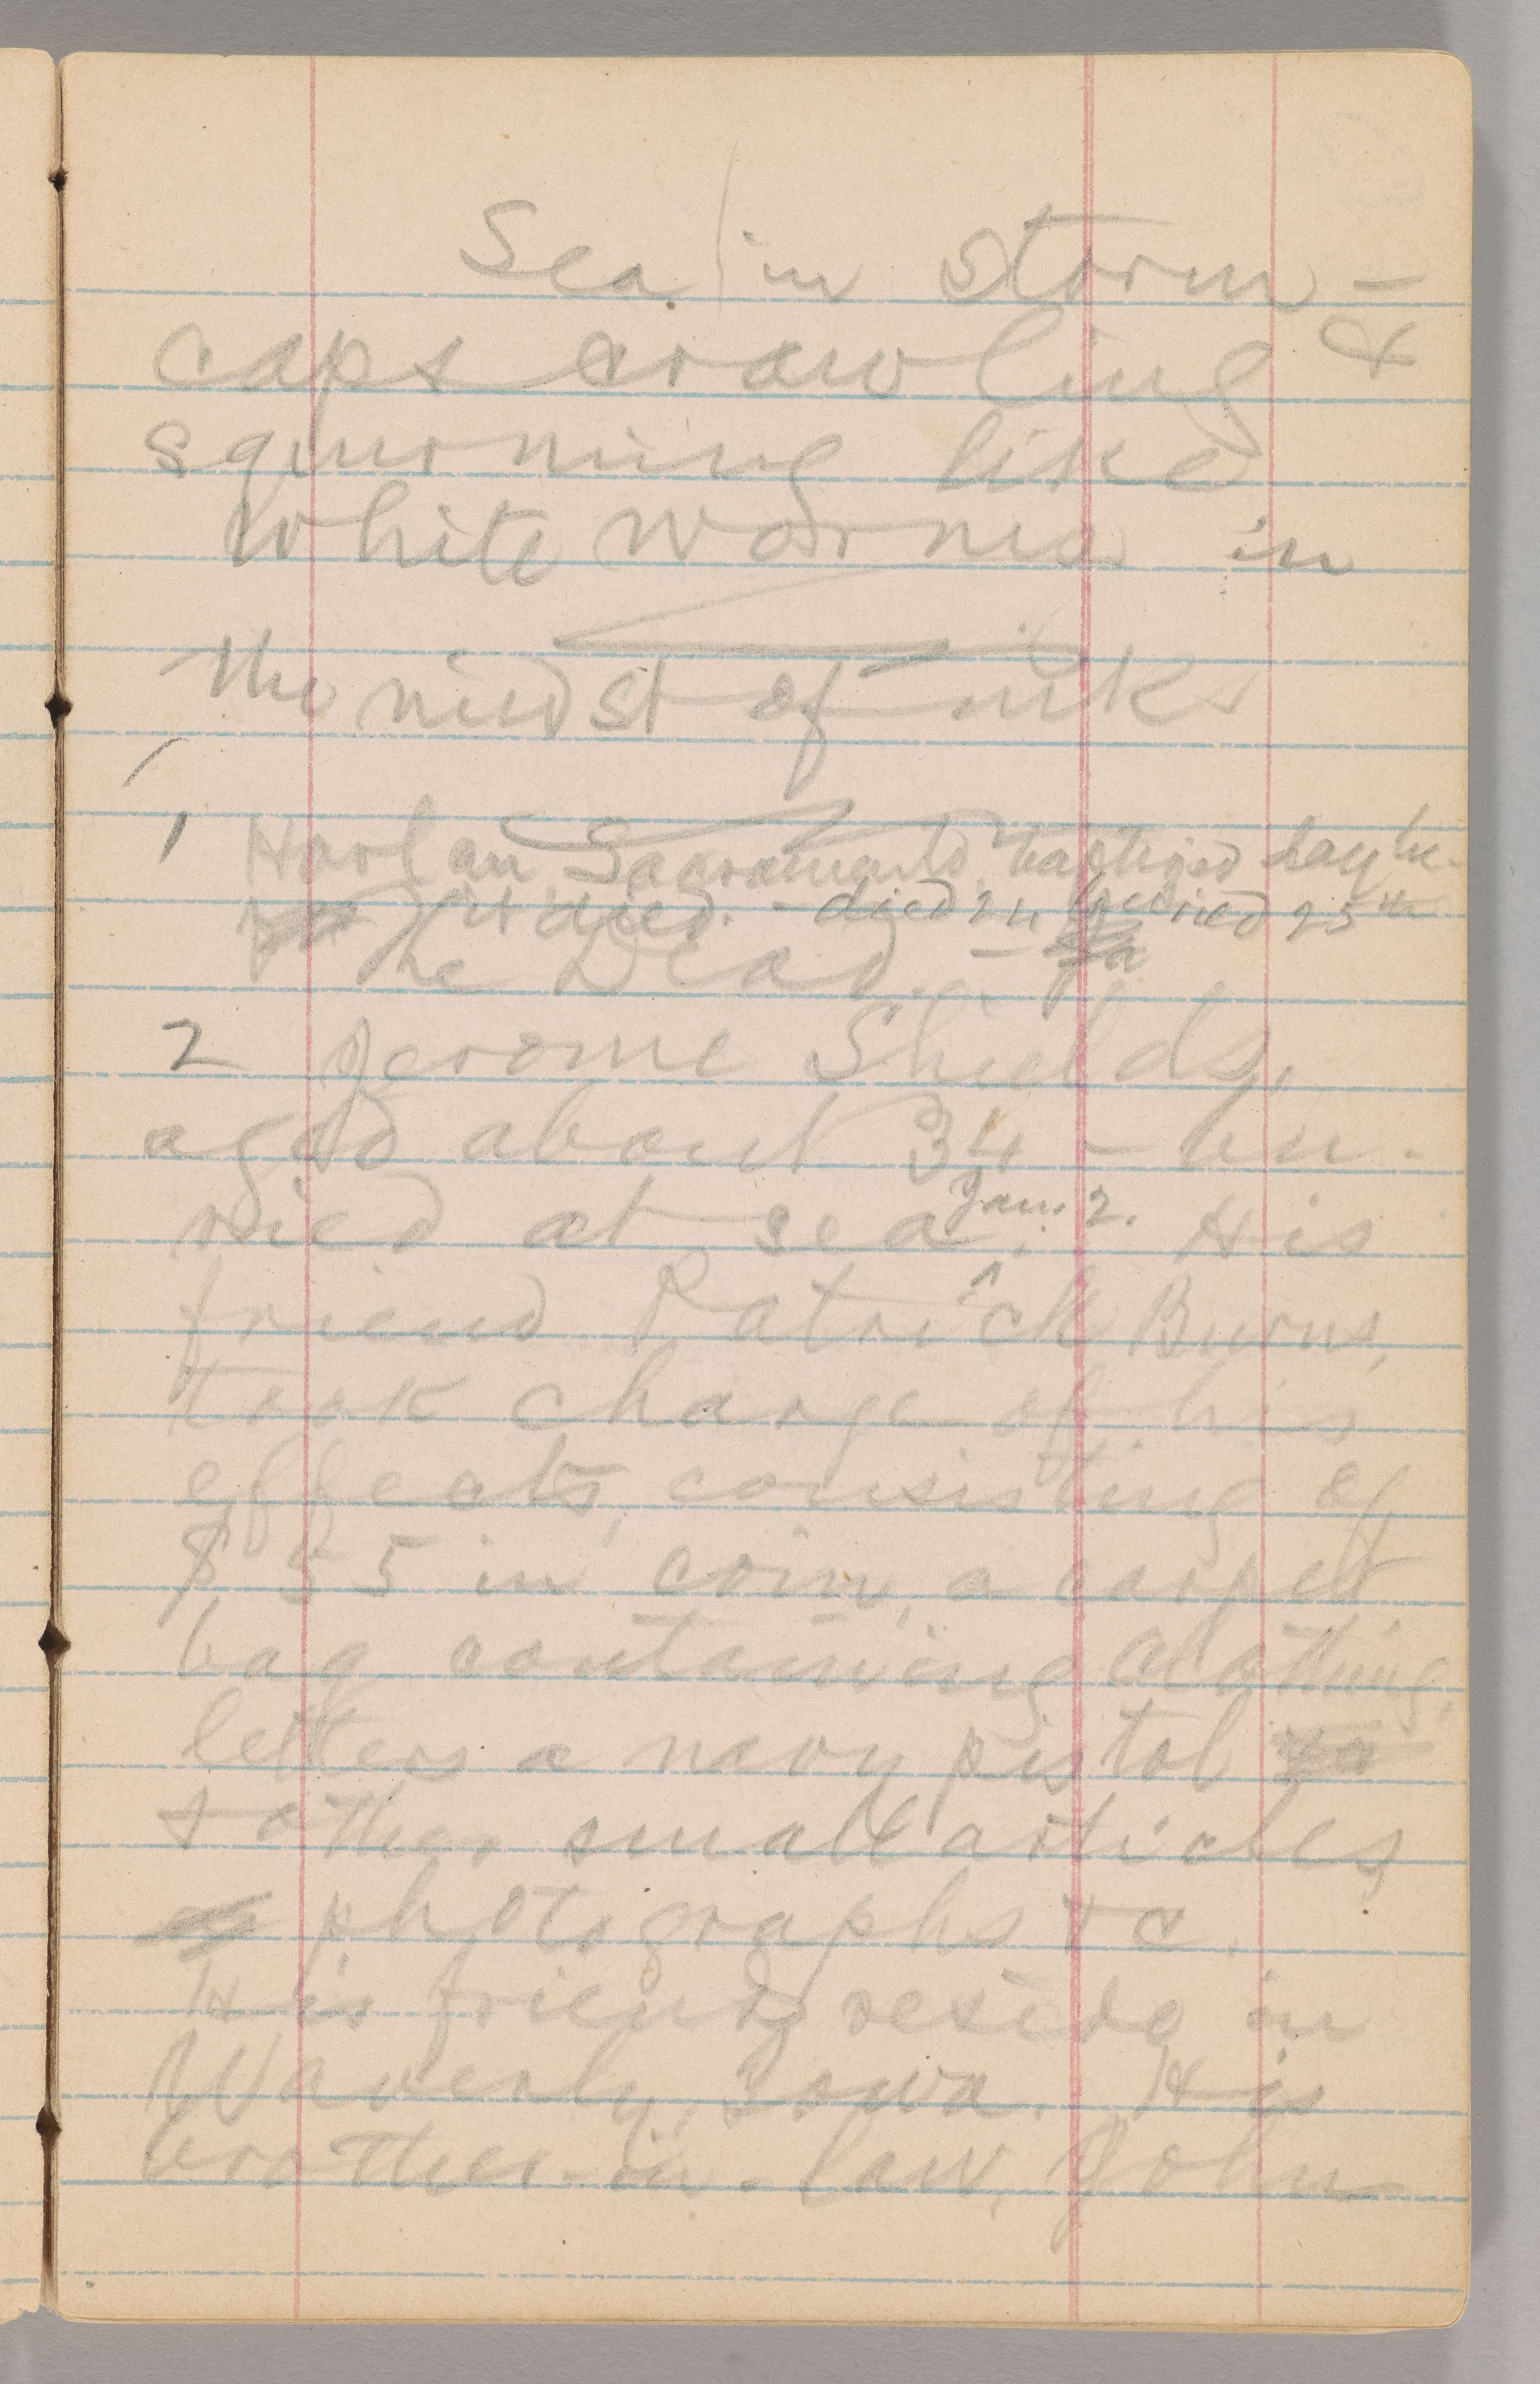 Sea in storm –
caps crawling &
squirming like
white worms in
the midst of ink
1 Harlan Sacramento, baptized day be-
fore it died. – died 24 buried 25th
The Dead. –
2 Jerome Shields,
aged about 34 – bu-
ried at sea Jan. 2. His
friend Patrick Burns,
took charge of his
effects, consisting of
$55 in coin, a carpet
bag containing clothing,
letters a navy pistol
& other small articles,
photographs &c.
His friends reside in
Waverly, Iowa. His
brother-in-law, John